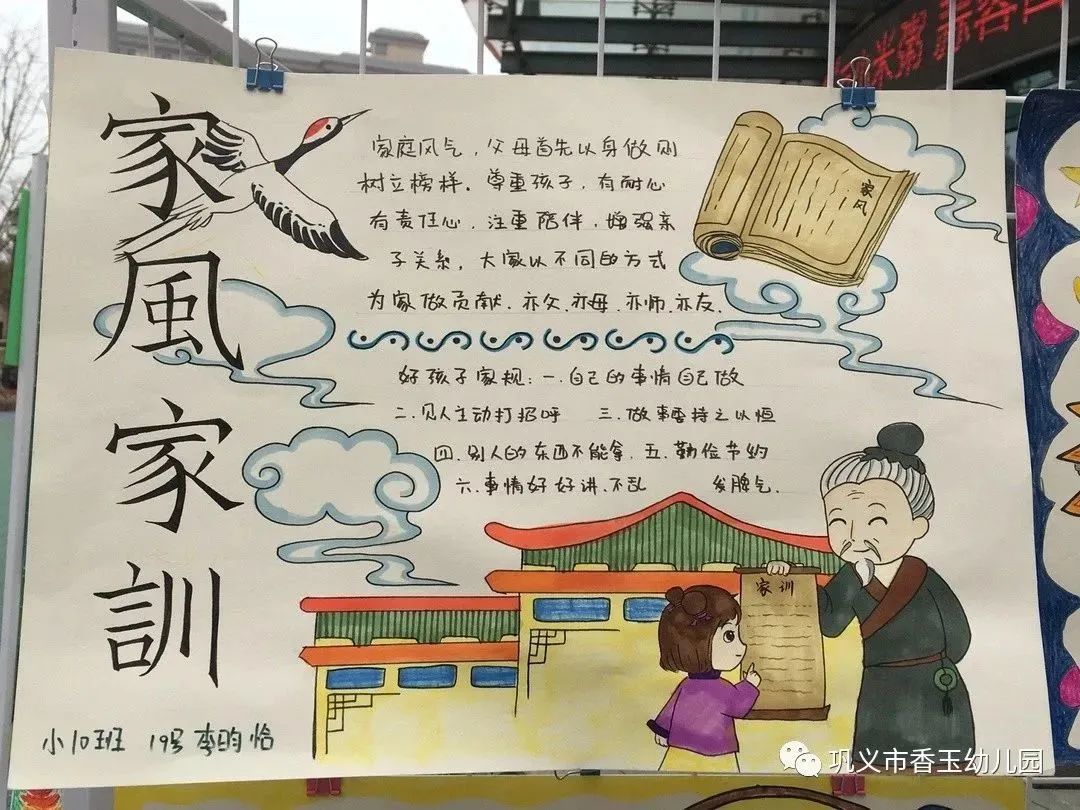 家風家訓
家庭风气，父母首先以身做则
树立榜样．尊重孩子，有耐心
有责任心，注重陪伴，增强亲
子关系，大家以不同的方式
为家做贡献．亦父．亦母．亦师．亦友．
家风
好孩子家规：一．自己的事情自己做
二．见人主动打招呼 三．做事要持之以恒
四．别人的东西不能拿．五．勤俭节约
六．事情好好讲．不乱 发脾气．
家训
小10班 19号 李昀恰
巩义市香玉幼儿园